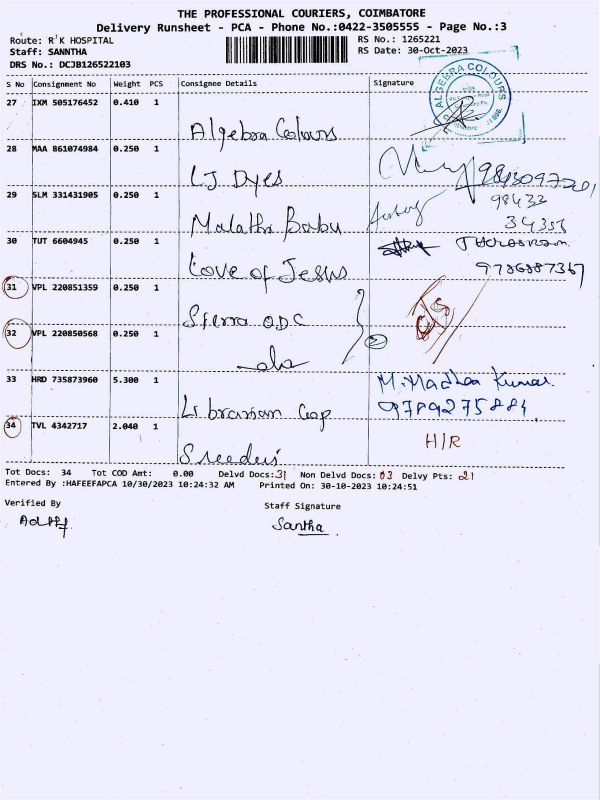 THE PROFESSIONAL COURIERS, COIMBATORE
Delivery Runsheet - PCA - Phone No.:0422-3505555 - Page No.:3
Route: R K HOSPITAL
RS No.: 1265221
Staff: SANNTHA
RS Date: 30-Oct-2023
DRS No.: DCJB126522103
S No Consignment No Weight PCS Consignee Details Signature
ALGEBRA COLOURS
27 IXM 505176452 0.410 1
Algebra Colours
28 MAA 861074984 0.250 1
LJ Dyes
29 SLM 331431905 0.250 1
98432
Malathi Babu
30 TUT 6604945 0.250 1
Love of Jesus
9786887367
31 VPL 220851359 0.250 1
Sierra ODC
32 VPL 220850568 0.250 1
33 HRD 735873960 5.300 1
M. Madhan Kumar
Librarian Coop
9789275884
34 TVL 4342717 2.040 1
H/R
Sreedevi
Tot Docs: 34 Tot COD Amt: 0.00 Delvd Docs: 31 Non Delvd Docs: 03 Delvy Pts: 21
Entered By :HAFEEFAPCA 10/30/2023 10:24:32 AM Printed On: 30-10-2023 10:24:51
Verified By
Staff Signature
Santha